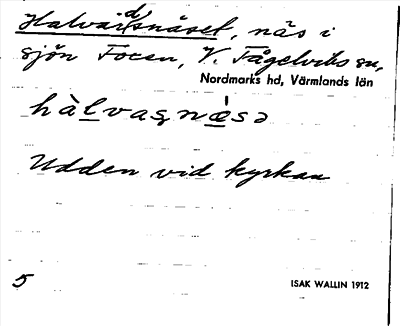 Halvardsnäset, näs i
sjön Foxen, V. Fågelviks sn,
Nordmarks hd, Värmlands län
hàlvaşnǽsə
Udden vid kyrkan
5
ISAK WALLIN 1912